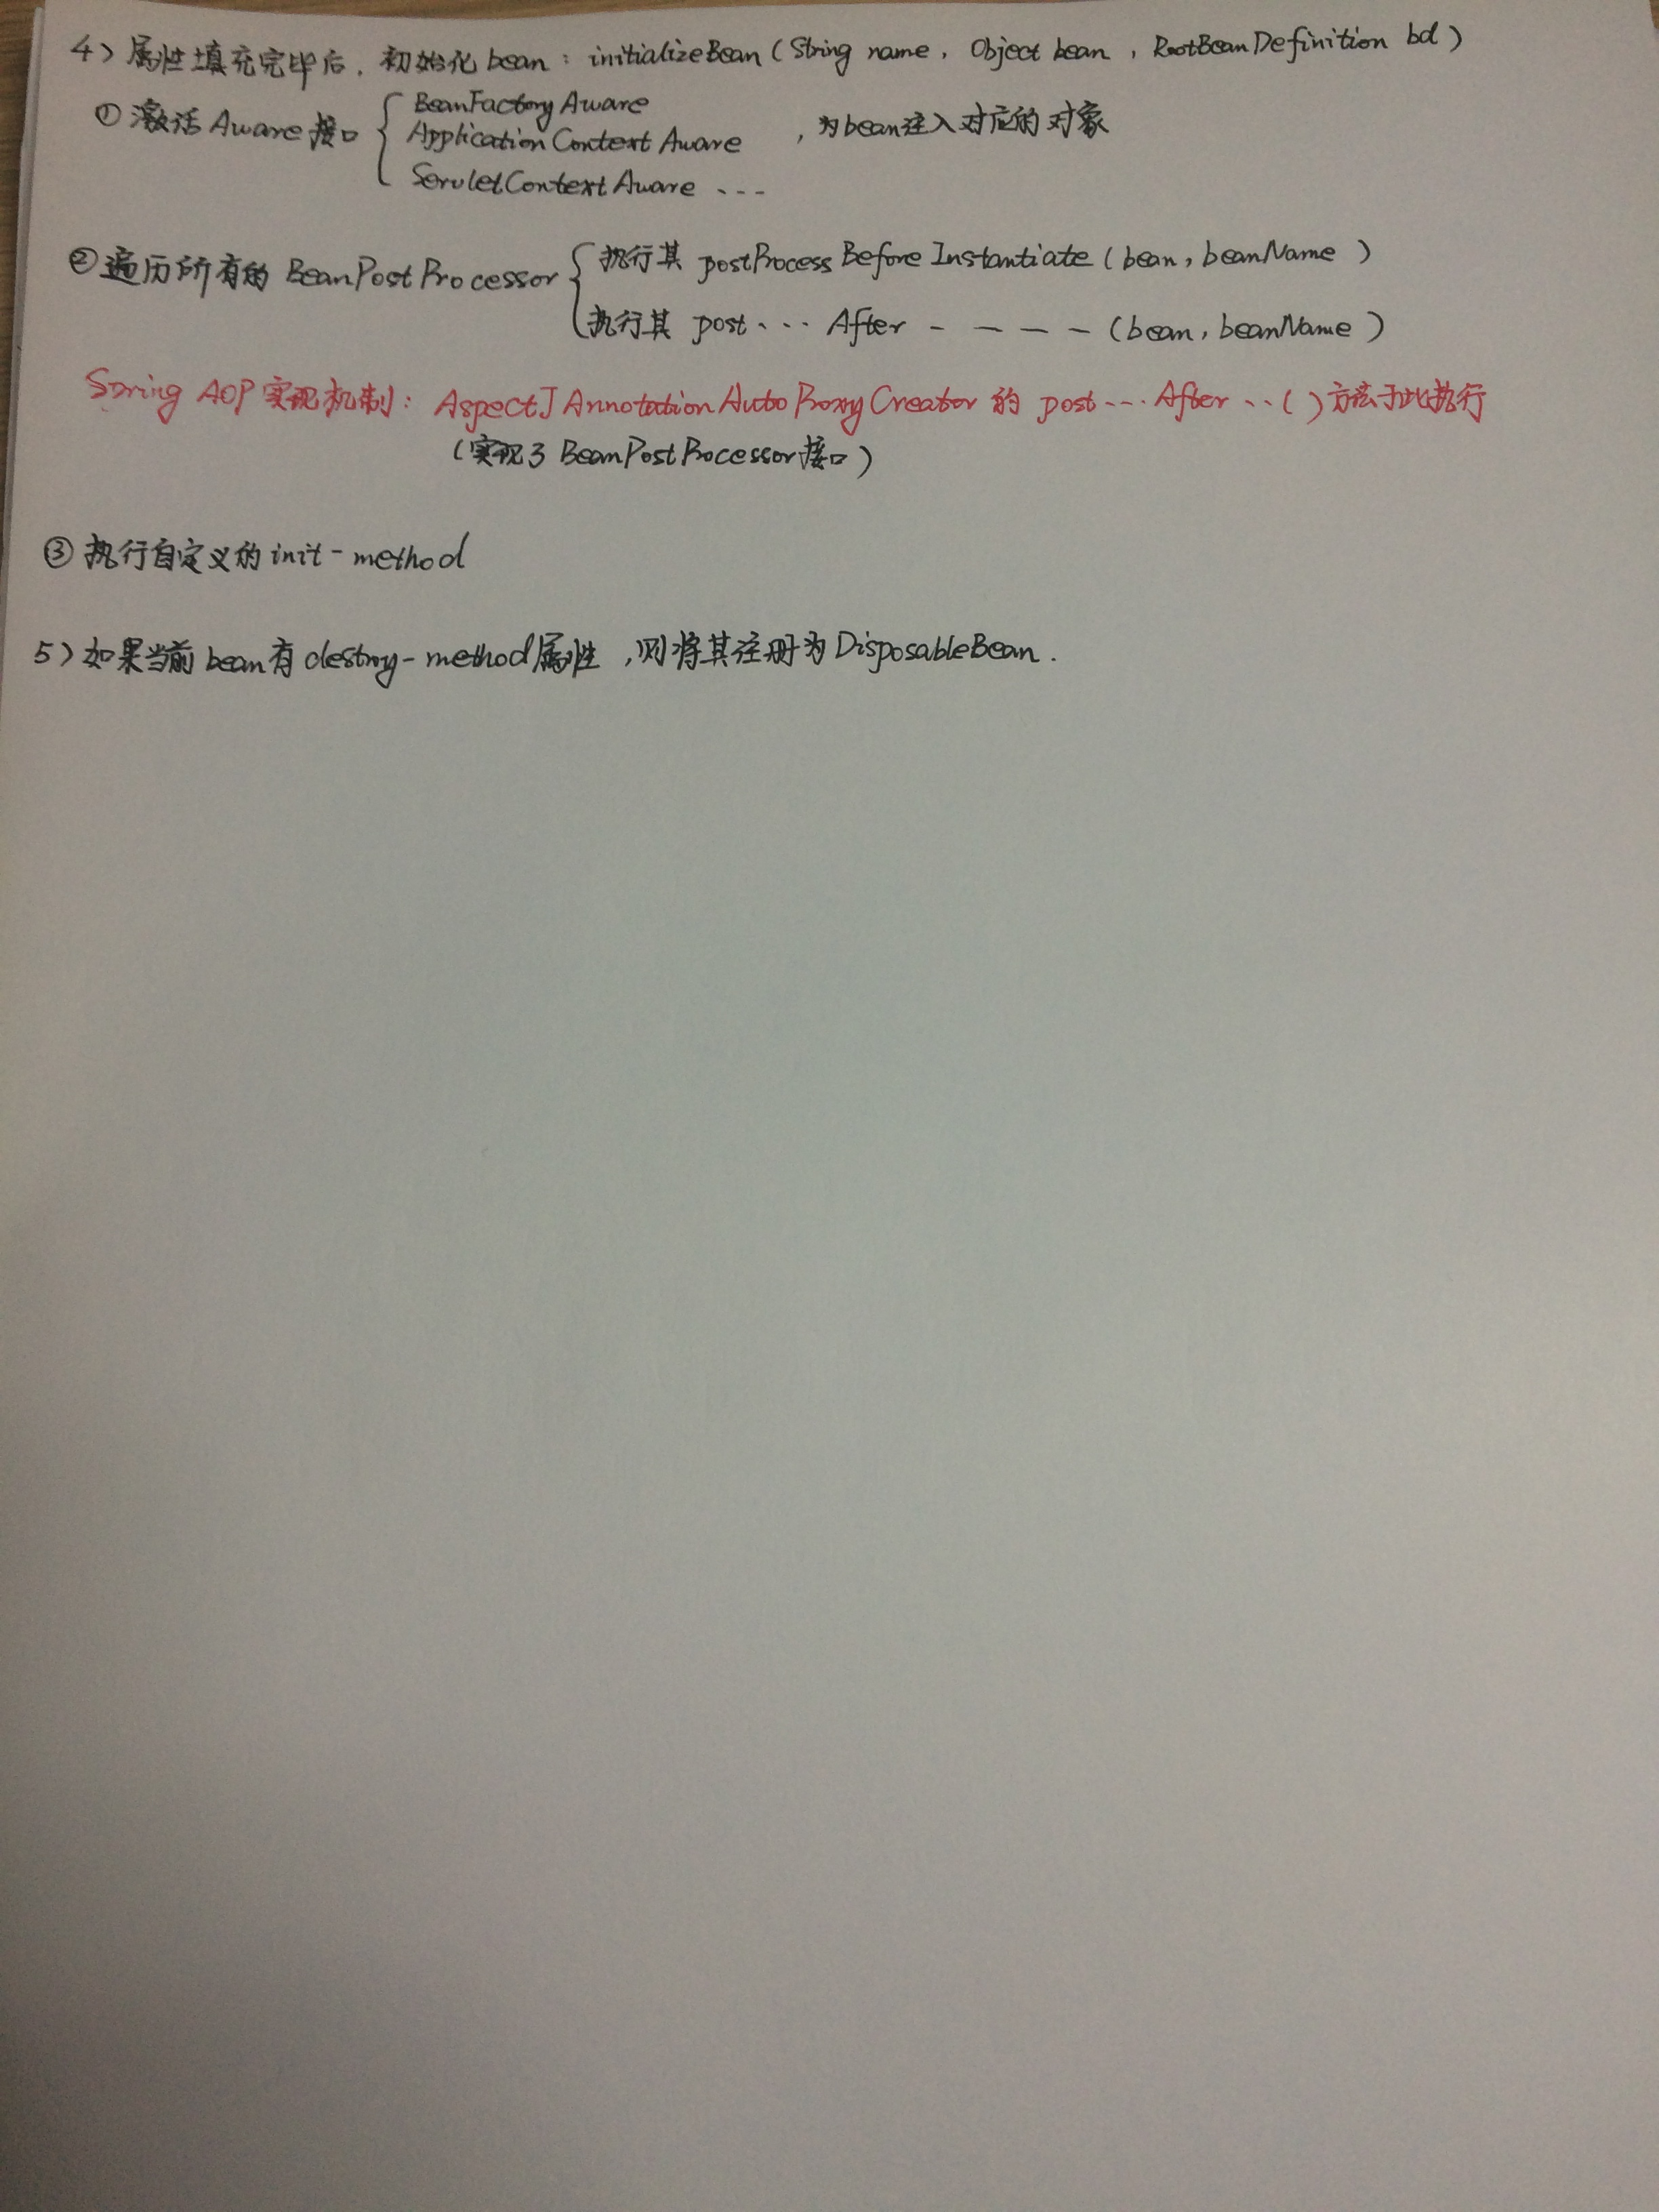 4）属性填充完毕后，初始化bean：initializeBean（String name，Object bean，RootBeanDefinition bd）
①激活Aware接口 { BeanFactoryAware
ApplicationContextAware ，为bean注入对应的对象
ServletContextAware ...
②遍历所有的BeanPostProcessor { 执行其 postProcessBeforeInstantiate（bean，beanName）
执行其 post... After - - - -（bean，beanName）
Spring AOP实现机制：AspectJAnnotationAutoProxyCreator的 post... After ..（）方法于此执行
（实现了BeanPostProcessor接口）
③执行自定义的init-method
5）如果当前bean有destroy-method属性，则将其注册为DisposableBean.